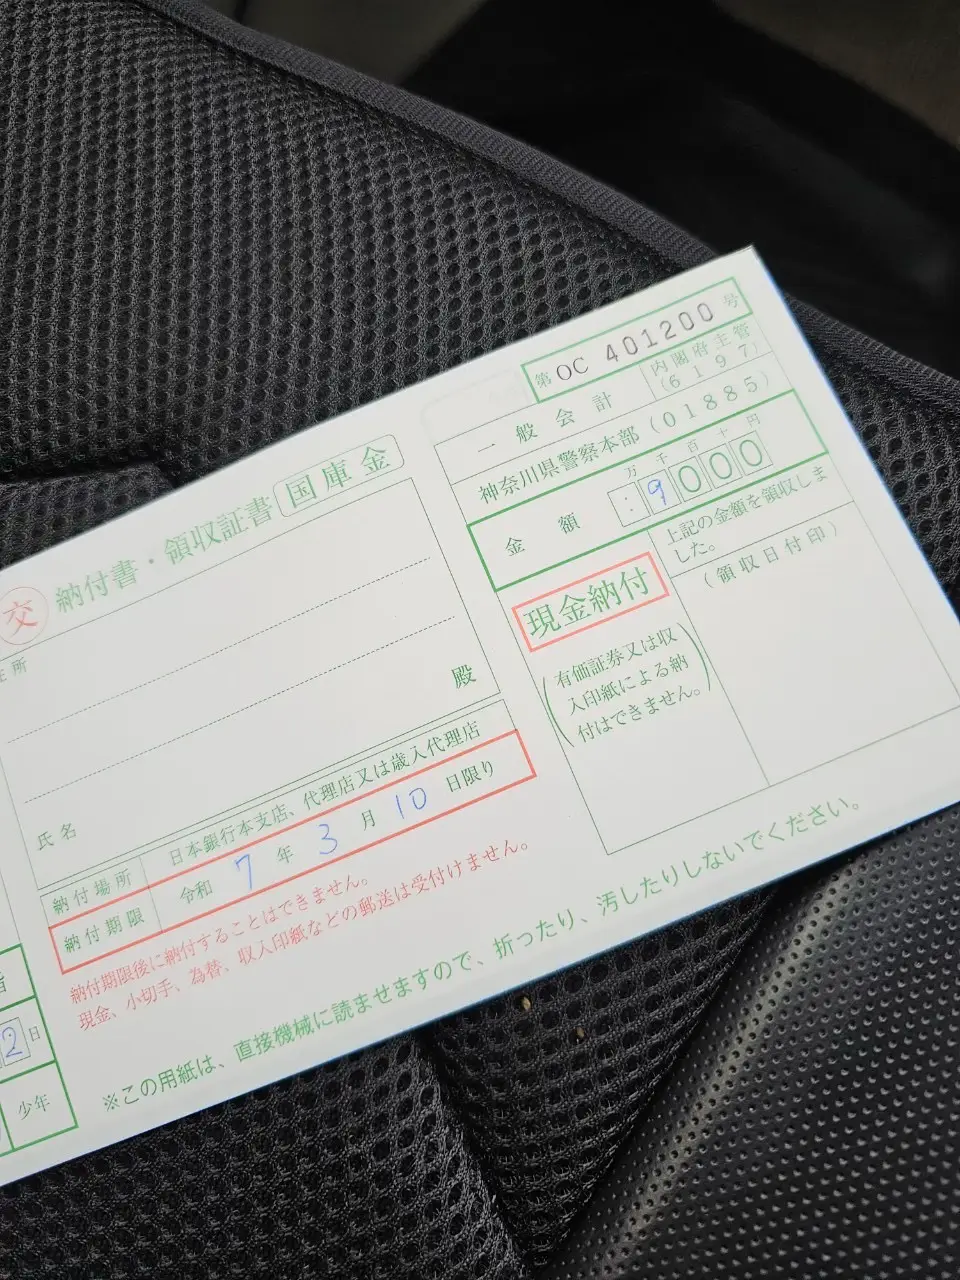 第 OC 401200 号
一般会計
内閣府主管
(6197)
神奈川県警察本部(01885)
万 千 百 十 円
金額 : 9000
上記の金額を領収しました。
(領収日付印)
現金納付
(有価証券又は収入印紙による納付はできません。)
交 納付書・領収証書 国庫金
住所
殿
氏名
納付場所 日本銀行本支店、代理店又は歳入代理店
納付期限 令和 7 年 3 月 10 日限り
納付期限後に納付することはできません。
現金、小切手、為替、収入印紙などの郵送は受付けません。
※この用紙は、直接機械に読ませますので、折ったり、汚したりしないでください。
2 日
少年